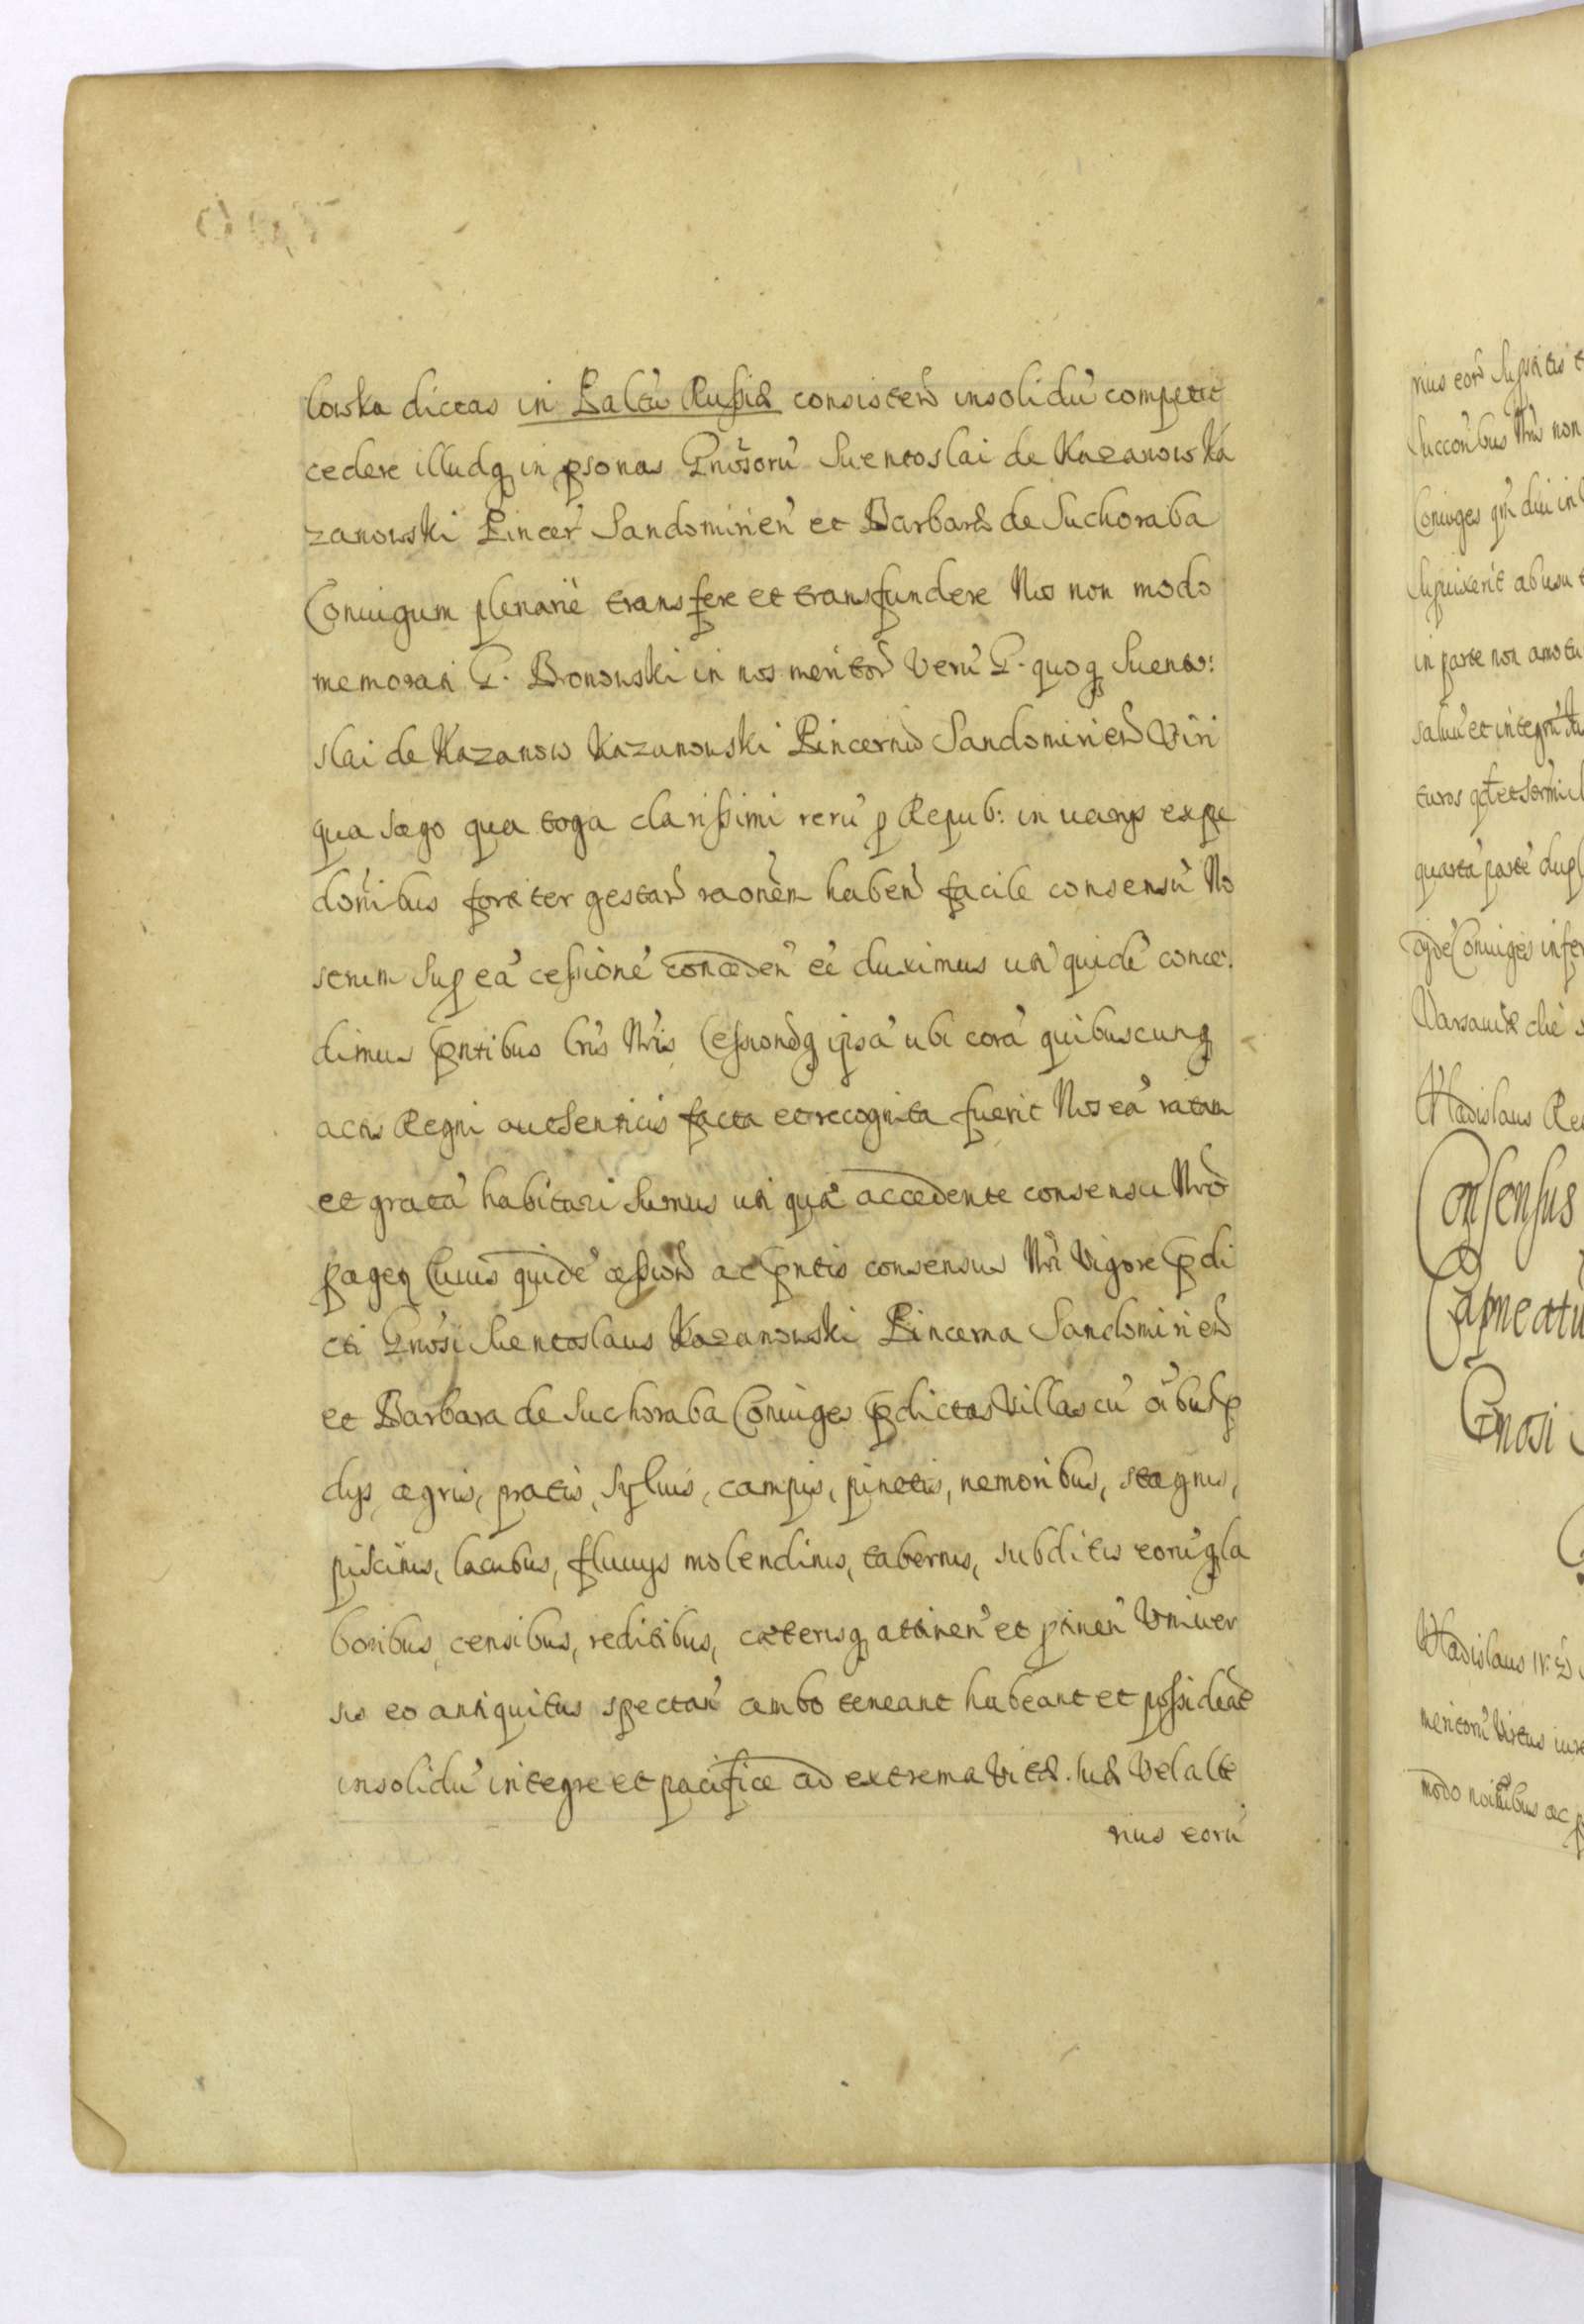 lowka dictas in Palatu Russiæ consisten insolidu competit
cedere illudq in psonas Gnosoru Suentoslai de Kazanow Ka
zanowski Pincer Sandomirien et Barbaræ de Suchoraba
Coniugum plenarie transfere et transfundere Nos non modo
memorati G. Bronowski in nos meritor Veru G. quoq Suento:
slai de Kazanow Kazanowski Pincernæ Sandomirien Viri
qua sago qua toga clarissimi reru p Repub: in uarys expe
donibus fortiter gestar raonem haben facile consensu No
strum Sup ea cessione conceden ee duximus uti quide conce:
dimus pntibus Lris Nris Cessionéq ipsa ubi cora quibuscunq
actis Regni authenticis facta et recognita fuerit Nos ea ratam
et grata habituri Sumus uti qua accedente consensu Nro
pageq Cuius quide cession ac pntis consensus Nri Vigore pdi
cti Gnosi Suentoslaus Kazanowski Pincerna Sandomirien
et Barbara de Suchoraba Coniuges pdictas Villas cu oibus p
dys agris, pratis, Syluis, campis, pinetis, nemoribus, stagnis,
piscinis, lacubus, fluuys molendinis, tabernis, subditis eoruq la
boribus, censibus, reditibus, cæterisq attinen et ptinen Vniuer
sis eo antiquitus spectan ambo teneant habeant et possideat
insolidu integre et pacifice ad extrema vitæ suæ Vel alte
rius eoru
rius eor
non
Coniuges
in
abusu
in parte non
saluu et integru
turos
quarta parte
Coniuges
Varsauiæ die
Vladislaus
Consensus
Gnosi
Vladislaus IV.
meritoru Virtus
modo